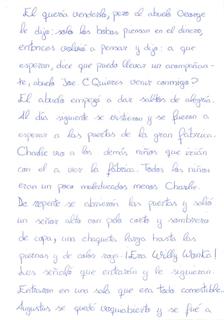 El quería venderlo, pero el abuelo George
le dijo: solo los bobos piensan en el dinero,
entonces volvió a pensar y dijo: a que
esperan, dice que puedo llevar un acompañan-
te, abuelo Joe ¿Quieres venir conmigo?
El abuelo empezó a dar saltos de alegría.
Al día siguiente se vistieron y se fueron a
esperar a las puertas de la gran fábrica.
Charlie vio a los demás niños que irían
con el a ver la fábrica. Todos los niños
eran un poco maleducados menos Charlie.
De repente se abrieron las puertas y salió
un señor alto con pelo corto y sombrero
de copa, una chaqueta larga hasta las
piernas y de color rojo. ¡Era Willy Wonka!
Les señaló que entrarán y le siguieran.
Entraron en una sala que era todo comestible.
Augustus se quedó boquiabierto y se fué a